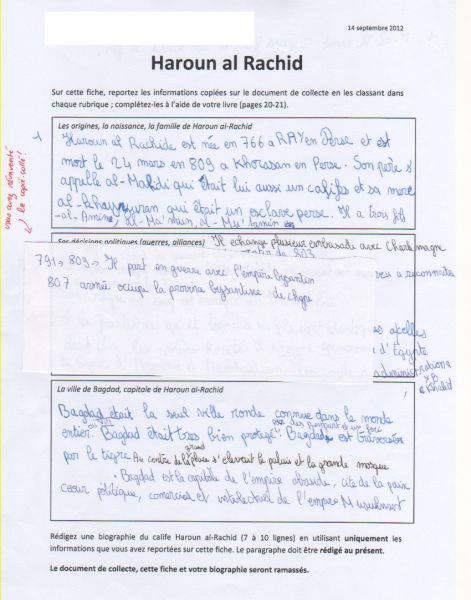 14 septembre 2012
Haroun al Rachid
Sur cette fiche, reportez les informations copiées sur le document de collecte en les classant dans
chaque rubrique ; complétez-les à l'aide de votre livre (pages 20-21).
Les origines, la naissance, la famille de Haroun al-Rachid
1
Haroun al Rachide est née en 766 a RAY en Perse et est
mort le 24 mars en 809 a Khorasan en Perse. Son père s'
appelle al-Mahdi qui était lui aussi un calife et sa mere
qui était un esclave perse. Il a trois fils
-al-Amine, al-Ma'mum, al-Mu'tamin
vous avez réinventé
le copié-collé !
Ses décisions politiques (guerres, alliances) Il echange plusieur embasads avec Charlemagne
791, 809 -> Il part en guerre avec l'empire byzantin
807 armée occupe la province byzantine de chypre
peu a reconnaitre
d'Egypte
administration a
a Khalid
La ville de Bagdad, capitale de Haroun al-Rachid
Bagdad était la seul ville ronde connue dans le monde
entier. Bagdad était tres bien protegé par des remparts et un fossé. Bagdad est traversée
par le tigre. Au centre de la grand place s'elevait le palais et la grande mosque
• Bagdad est la capitale de l'empire abasside, cité de la paix
Cœur politique, comercial et intelectuel de l'empire Musulmant
Rédigez une biographie du calife Haroun al-Rachid (7 à 10 lignes) en utilisant uniquement les
informations que vous avez reportées sur cette fiche. Le paragraphe doit être rédigé au présent.
Le document de collecte, cette fiche et votre biographie seront ramassés.